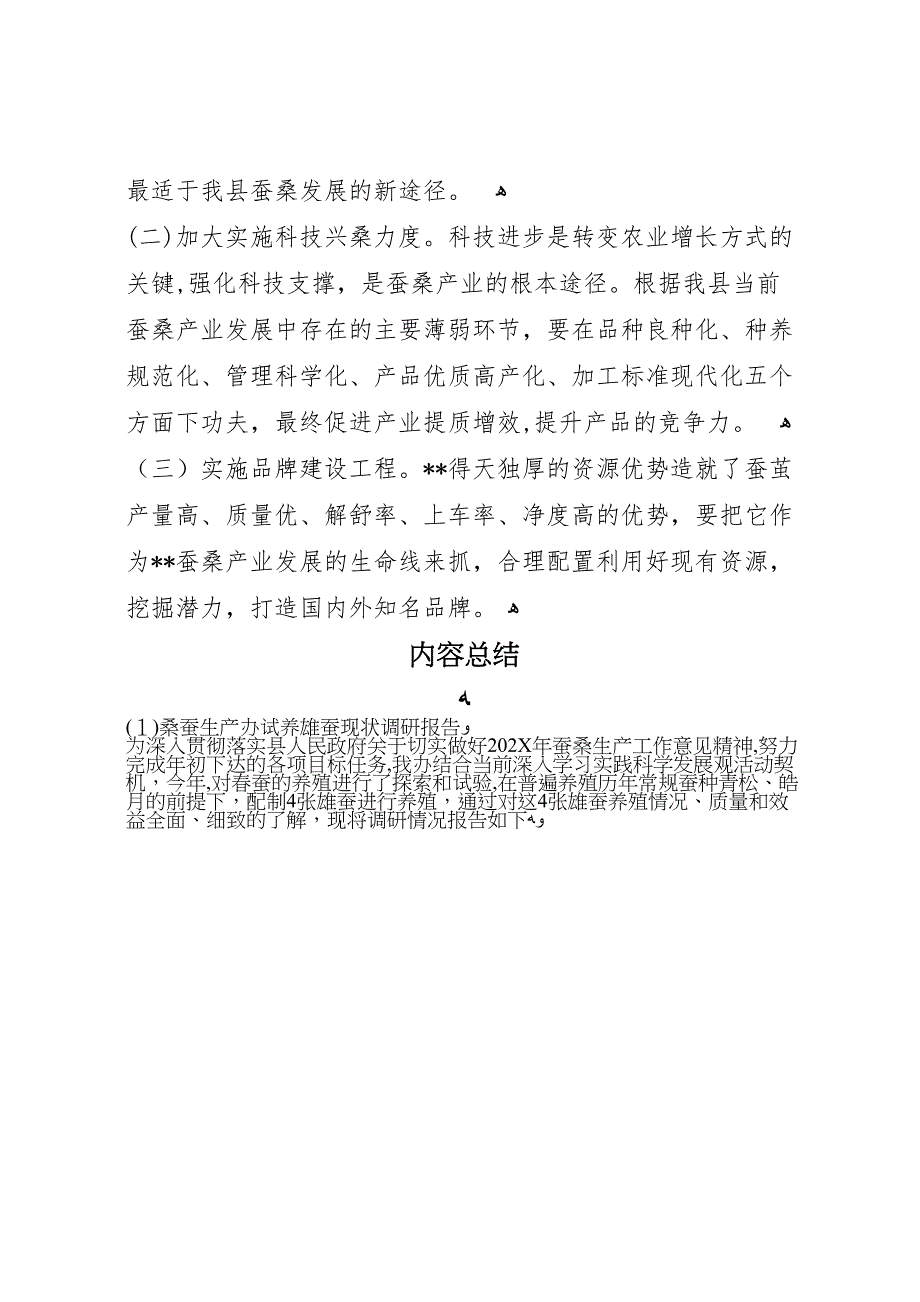 最适于我县蚕桑发展的新途径。 ﻫ
(二)加大实施科技兴桑力度。科技进步是转变农业增长方式的
关键,强化科技支撑，是蚕桑产业的根本途径。根据我县当前
蚕桑产业发展中存在的主要薄弱环节，要在品种良种化、种养
规范化、管理科学化、产品优质高产化、加工标准现代化五个
方面下功夫，最终促进产业提质增效,提升产品的竞争力。 ﻫ
（三）实施品牌建设工程。**得天独厚的资源优势造就了蚕茧
产量高、质量优、解舒率、上车率、净度高的优势，要把它作
为**蚕桑产业发展的生命线来抓，合理配置利用好现有资源，
挖掘潜力，打造国内外知名品牌。 ﻫ
内容总结
ﻪ
(1)桑蚕生产办试养雄蚕现状调研报告و
为深入贯彻落实县人民政府关于切实做好202X年蚕桑生产工作意见精神,努力
完成年初下达的各项目标任务,我办结合当前深入学习实践科学发展观活动契
机，今年,对春蚕的养殖进行了探索和试验,在普遍养殖历年常规蚕种青松、皓
月的前提下，配制4张雄蚕进行养殖，通过对这4张雄蚕养殖情况、质量和效
益全面、细致的了解，现将调研情况报告如下ﻪو